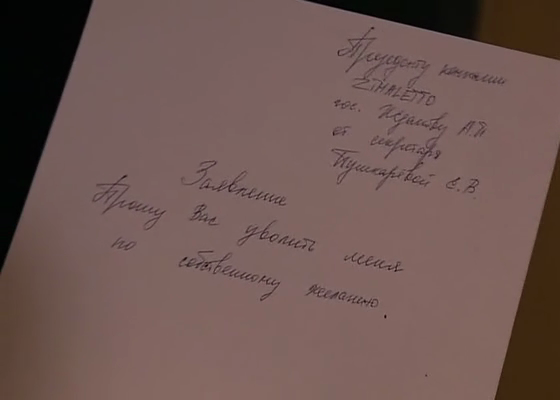 Президенту компании
ZIMALETTO
гос. Жданову А.П
от секретаря
Пушкарёвой Е.В.
Заявление
Прошу Вас уволить меня
по собственному желанию.